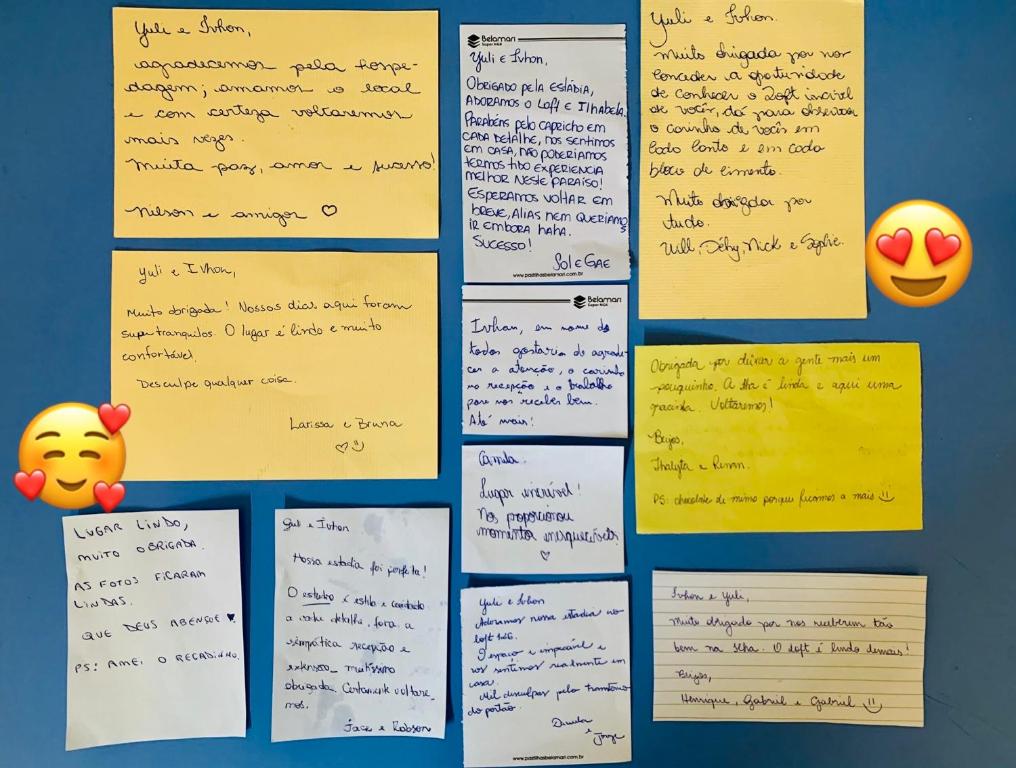 Yuli e Ivhon,
agradecemos pela hospe-
dagem; amamos o local
e com certeza voltaremos
mais vezes.
Muita paz, amor e sucesso!
Nilson e amigos ♡
Yuli e Ivhon,
Muito obrigada! Nossos dias aqui foram
super tranquilos. O lugar é lindo e muito
confortável.
Desculpe qualquer coisa.
Larissa e Bruna
LUGAR LINDO,
MUITO OBRIGADA.
AS FOTOS FICARAM
LINDAS.
QUE DEUS ABENÇOE ♥
PS: AMEI O RECADINHO.
Yuli e Ivhon
Nossa estadia foi perfeita!
O estudio é estilo e
a cada detalhe, fora a
simpática recepção e
obrigada. Certamente voltare-
mos.
Jace e Robson
Belamari
Super NGK
Yuli e Ivhon,
OBRIGADO PELA ESTÁDIA,
ADORAMOS O LOFT E ILHABELA.
PARABÉNS PELO CAPRICHO EM
CADA DETALHE, NOS SENTIMOS
EM CASA, NÃO PODERIAMOS
TERMOS TIDO EXPERIENCIA
MELHOR NESTE PARAÍSO!
ESPERAMOS VOLTAR EM
BREVE, ALIAS NEM QUERIAMOS
IR EMBORA HAHA.
SUCESSO!
Sol e GAE
www.pastilhasbelamari.com.br
Belamari
Super NGK
Ivhon, em nome de
todos gostaria de agrade-
cer a atenção, o carinho
na recepção e o trabalho
para nos receber bem.
Até mais!
Camila.
Lugar incrível!
Nos proporcionou
momentos inesquecíveis!
♡
Yuli e Ivhon
Adoramos nossa estadia no
loft
O espaço é impecável e
nos sentimos realmente em
casa.
Mil desculpas pelo transtorno
do portão.
Daniela
e
Jorge
www.pastilhasbelamari.com.br
Yuli e Ivhon.
Muito obrigada por nos
conceder a oportunidade
de conhecer o Loft incrível
de vocês, dá para observar
o carinho de vocês em
todo canto e em cada
bloco de cimento.
Muito obrigada por
tudo.
Will, Déby, Nick e Sophie.
Obrigada por deixar a gente mais um
pouquinho. A ilha é linda e aqui uma
gracinha. Voltaremos!
Beijos,
Thalyta e Renan.
PS: chocolate de mimo porque ficamos a mais
Ivhon e Yuli,
Muito obrigado por nos receberem tão
bem na Ilha. O loft é lindo demais!
Beijos,
Henrique, Gabriel e Gabriel